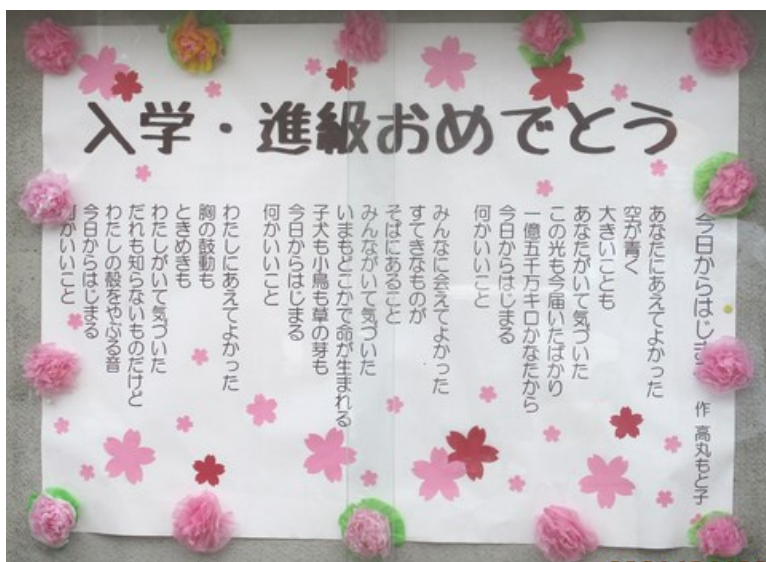 入学・進級おめでとう
今日からはじま
作 高丸もと子
あなたにあえてよかった
空が青く
大きいことも
あなたがいて気づいた
この光も今届いたばかり
一億五千万キロかなたから
今日からはじまる
何かいいこと
みんなに会えてよかった
すてきなものが
そばにあること
みんながいて気づいた
いまもどこかで命が生まれる
子犬も小鳥も草の芽も
今日からはじまる
何かいいこと
わたしにあえてよかった
胸の鼓動も
ときめきも
わたしがいて気づいた
だれも知らないものだけど
わたしの殻をやぶる音
今日からはじまる
何かいいこと